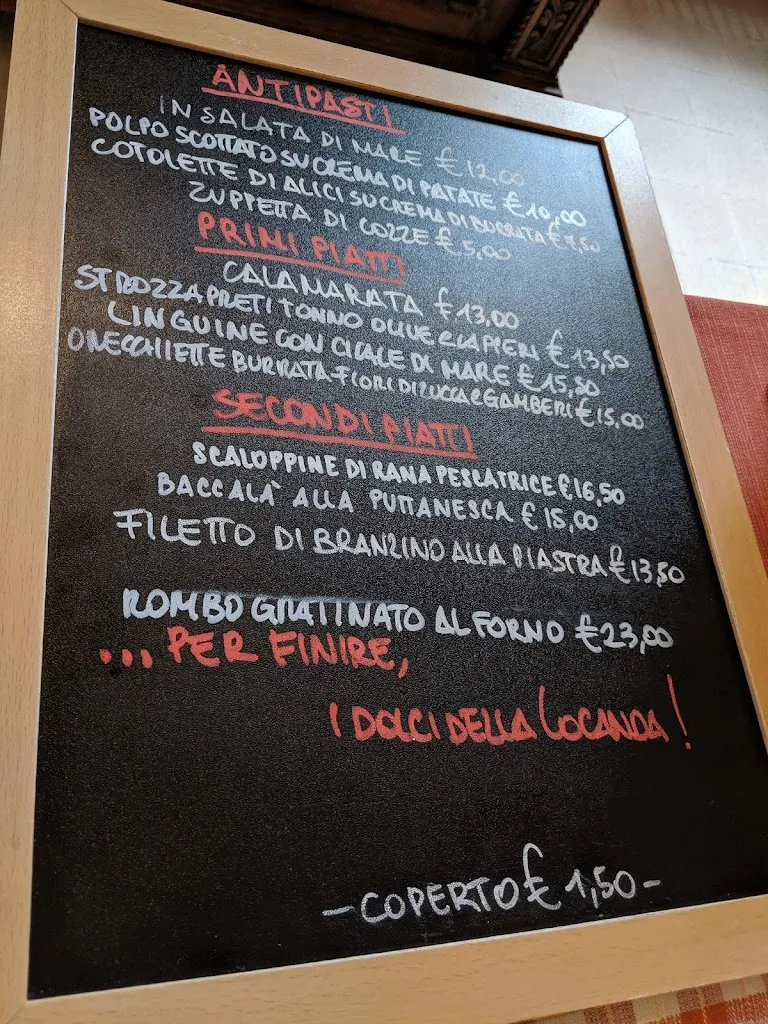 ANTIPASTI
INSALATA DI MARE €12,00
POLPO SCOTTATO SU CREMA DI PATATE €10,00
COTOLETTE DI ALICI SU CREMA DI BURRATA €7,50
ZUPPETTA DI COZZE €5,00
PRIMI PIATTI
CALAMARATA €13,00
STROZZAPRETI TONNO OLIVE CAPPERI €13,50
LINGUINE CON CICALE DI MARE €15,50
ORECCHIETTE BURRATA-FIORI DI ZUCCA E GAMBERI €15,00
SECONDI PIATTI
SCALOPPINE DI RANA PESCATRICE €16,50
BACCALÀ ALLA PUTTANESCA €15,00
FILETTO DI BRANZINO ALLA PIASTRA €13,50
ROMBO GRATINATO AL FORNO €23,00
... PER FINIRE,
I DOLCI DELLA LOCANDA!
-COPERTO € 1,50-